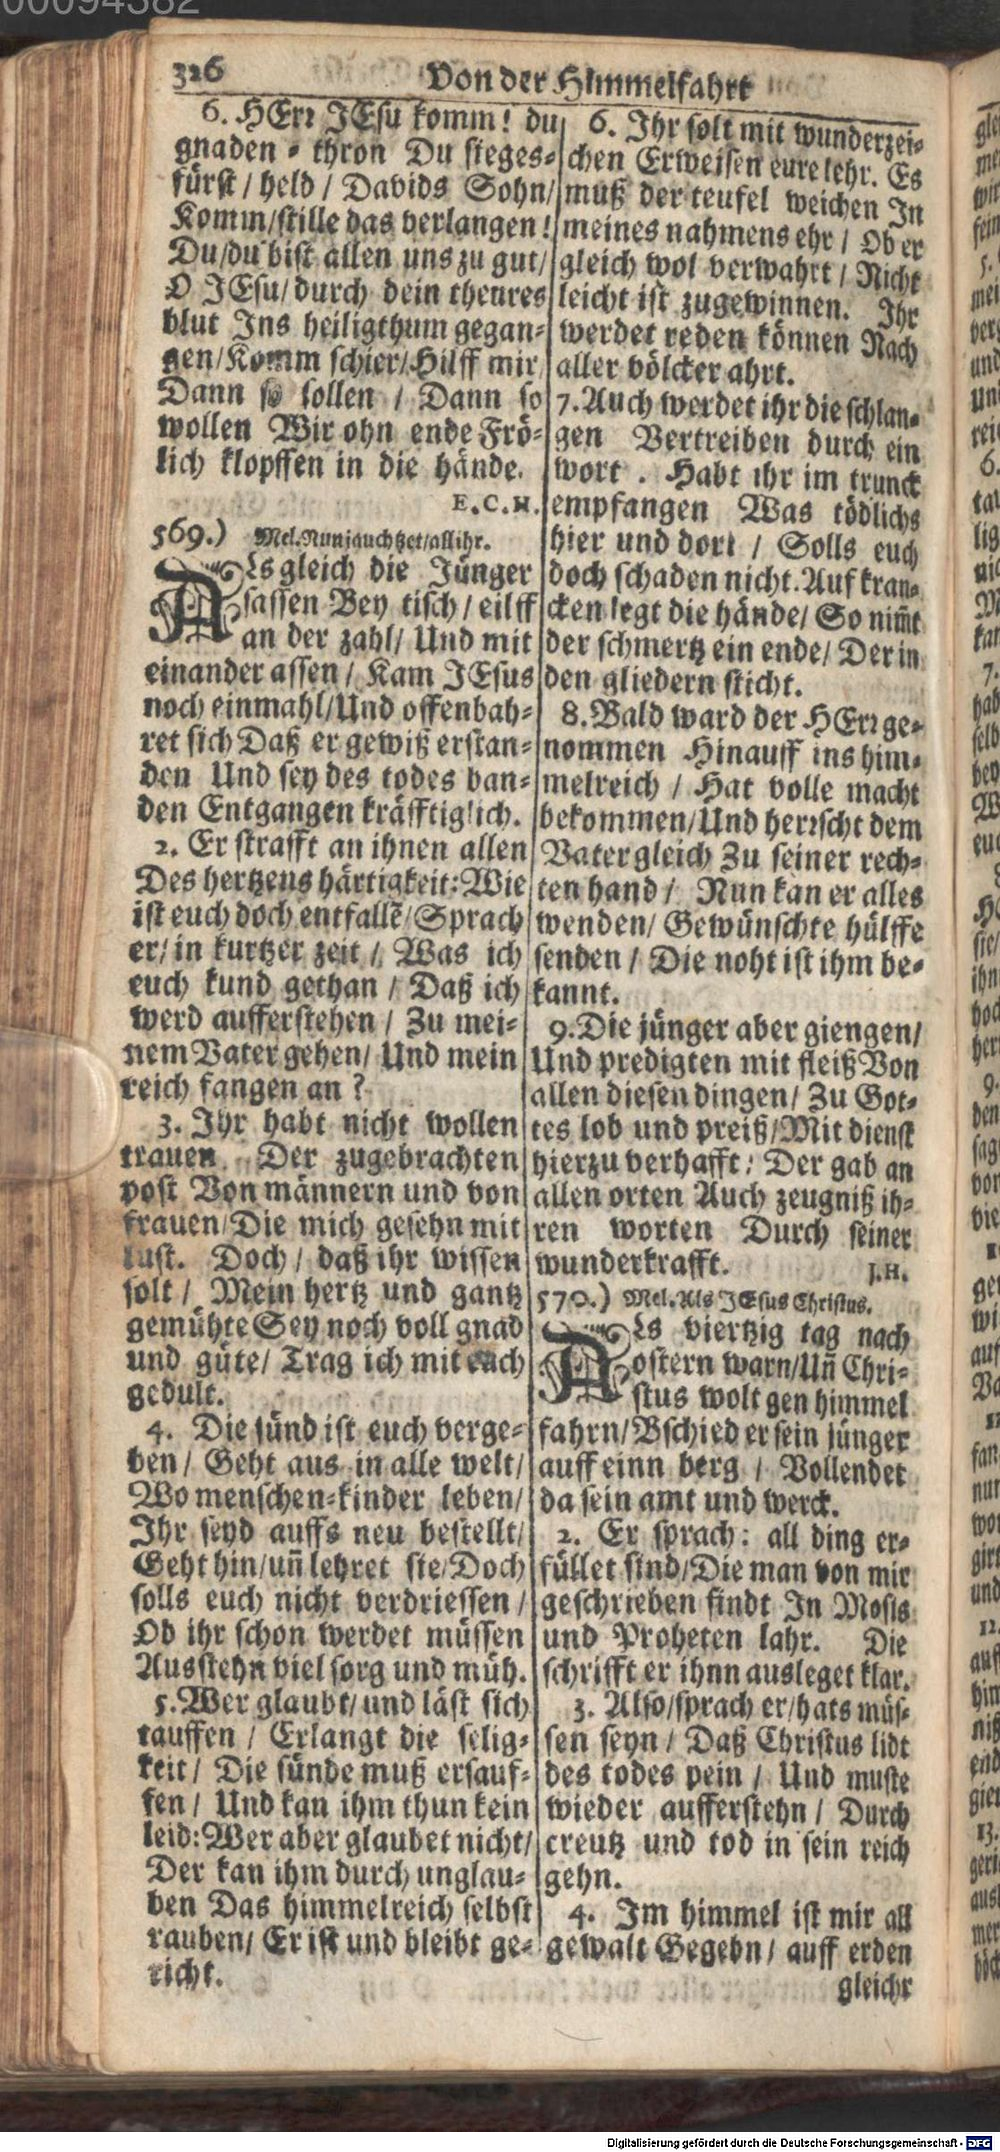 00094382
326 Von der Himmelfahrt
6. HErr JEsu komm! du
gnaden = thron Du sieges=
fürst / held / Davids Sohn/
Komm/stille das verlangen!
Du/du bist allen uns zu gut/
O JEsu/durch dein theures
blut Ins heiligthum gegan=
gen/Komm schier/Hilff mir
Dann so sollen / Dann so
wollen Wir ohn ende Frö=
lich klopffen in die hände.
E.C.H.
569.) Mel. Nun jauchtzet/all ihr.
Als gleich die Jünger
sassen Bey tisch / eilff
an der zahl/ Und mit
einander assen / Kam JEsus
noch einmahl/Und offenbah=
ret sich Daß er gewiß erstan=
den Und sey des todes ban=
den Entgangen kräfftiglich.
2. Er strafft an ihnen allen
Des hertzens härtigkeit: Wie
ist euch doch entfallē/Sprach
er/ in kurtzer zeit / Was ich
euch kund gethan / Daß ich
werd aufferstehen / Zu mei=
nem Vater gehen/ Und mein
reich fangen an ?
3. Ihr habt nicht wollen
trauen Der zugebrachten
post Von männern und von
frauen/Die mich gesehn mit
lust. Doch / daß ihr wissen
solt / Mein hertz und gantz
gemühte Sey noch voll gnad
und güte/ Trag ich mit euch
gedult.
4. Die sünd ist euch verge=
ben / Geht aus in alle welt/
Wo menschen=kinder leben/
Ihr seyd auffs neu bestellt/
Geht hin/uñ lehret sie/Doch
solls euch nicht verdriessen /
Ob ihr schon werdet müssen
Ausstehn viel sorg und müh.
5. Wer glaubt/ und läst sich
tauffen / Erlangt die selig=
keit / Die sünde muß ersauf=
fen / Und kan ihm thun kein
leid: Wer aber glaubet nicht/
Der kan ihm durch unglau=
ben Das himmelreich selbst
rauben/ Er ist und bleibt ge=
richt.
6. Ihr solt mit wunderzei=
chen Erweisen eure lehr. Es
muß der teufel weichen In
meines nahmens ehr / Ob er
gleich wol verwahrt / Nicht
leicht ist zugewinnen. Ihr
werdet reden können Nach
aller völcker ahrt.
7. Auch werdet ihr die schlan=
gen Vertreiben durch ein
wort . Habt ihr im trunck
empfangen Was tödlichs
hier und dort / Solls euch
doch schaden nicht. Auf kran=
cken legt die hände/ So nim̃t
der schmertz ein ende/ Der in
den gliedern sticht.
8. Bald ward der HErr ge=
nommen Hinauff ins him=
melreich / Hat volle macht
bekommen/Und herrscht dem
Vater gleich Zu seiner rech=
ten hand / Nun kan er alles
wenden/ Gewünschte hülffe
senden / Die noht ist ihm be=
kannt.
9. Die jünger aber giengen/
Und predigten mit fleiß Von
allen diesen dingen/ Zu Got=
tes lob und preiß/Mit dienst
hierzu verhafft: Der gab an
allen orten Auch zeugniß ih=
ren worten Durch seiner
wunderkrafft.
J.H.
570.) Mel. Als JEsus Christus.
Als viertzig tag nach
ostern warn/Uñ Chri=
stus wolt gen himmel
fahrn/Bschied er sein jünger
auff einn berg / Vollendet
da sein amt und werck.
2. Er sprach: all ding er=
füllet sind/Die man von mir
geschrieben findt In Mosis
und Proheten lahr. Die
schrifft er ihnn ausleget klar.
3. Also/sprach er/hats müs=
sen seyn / Daß Christus lidt
des todes pein / Und muste
wieder aufferstehn / Durch
creutz und tod in sein reich
gehn.
4. Im himmel ist mir all
gewalt Gegebn / auff erden
gleicher
Digitalisierung gefördert durch die Deutsche Forschungsgemeinschaft - DFG